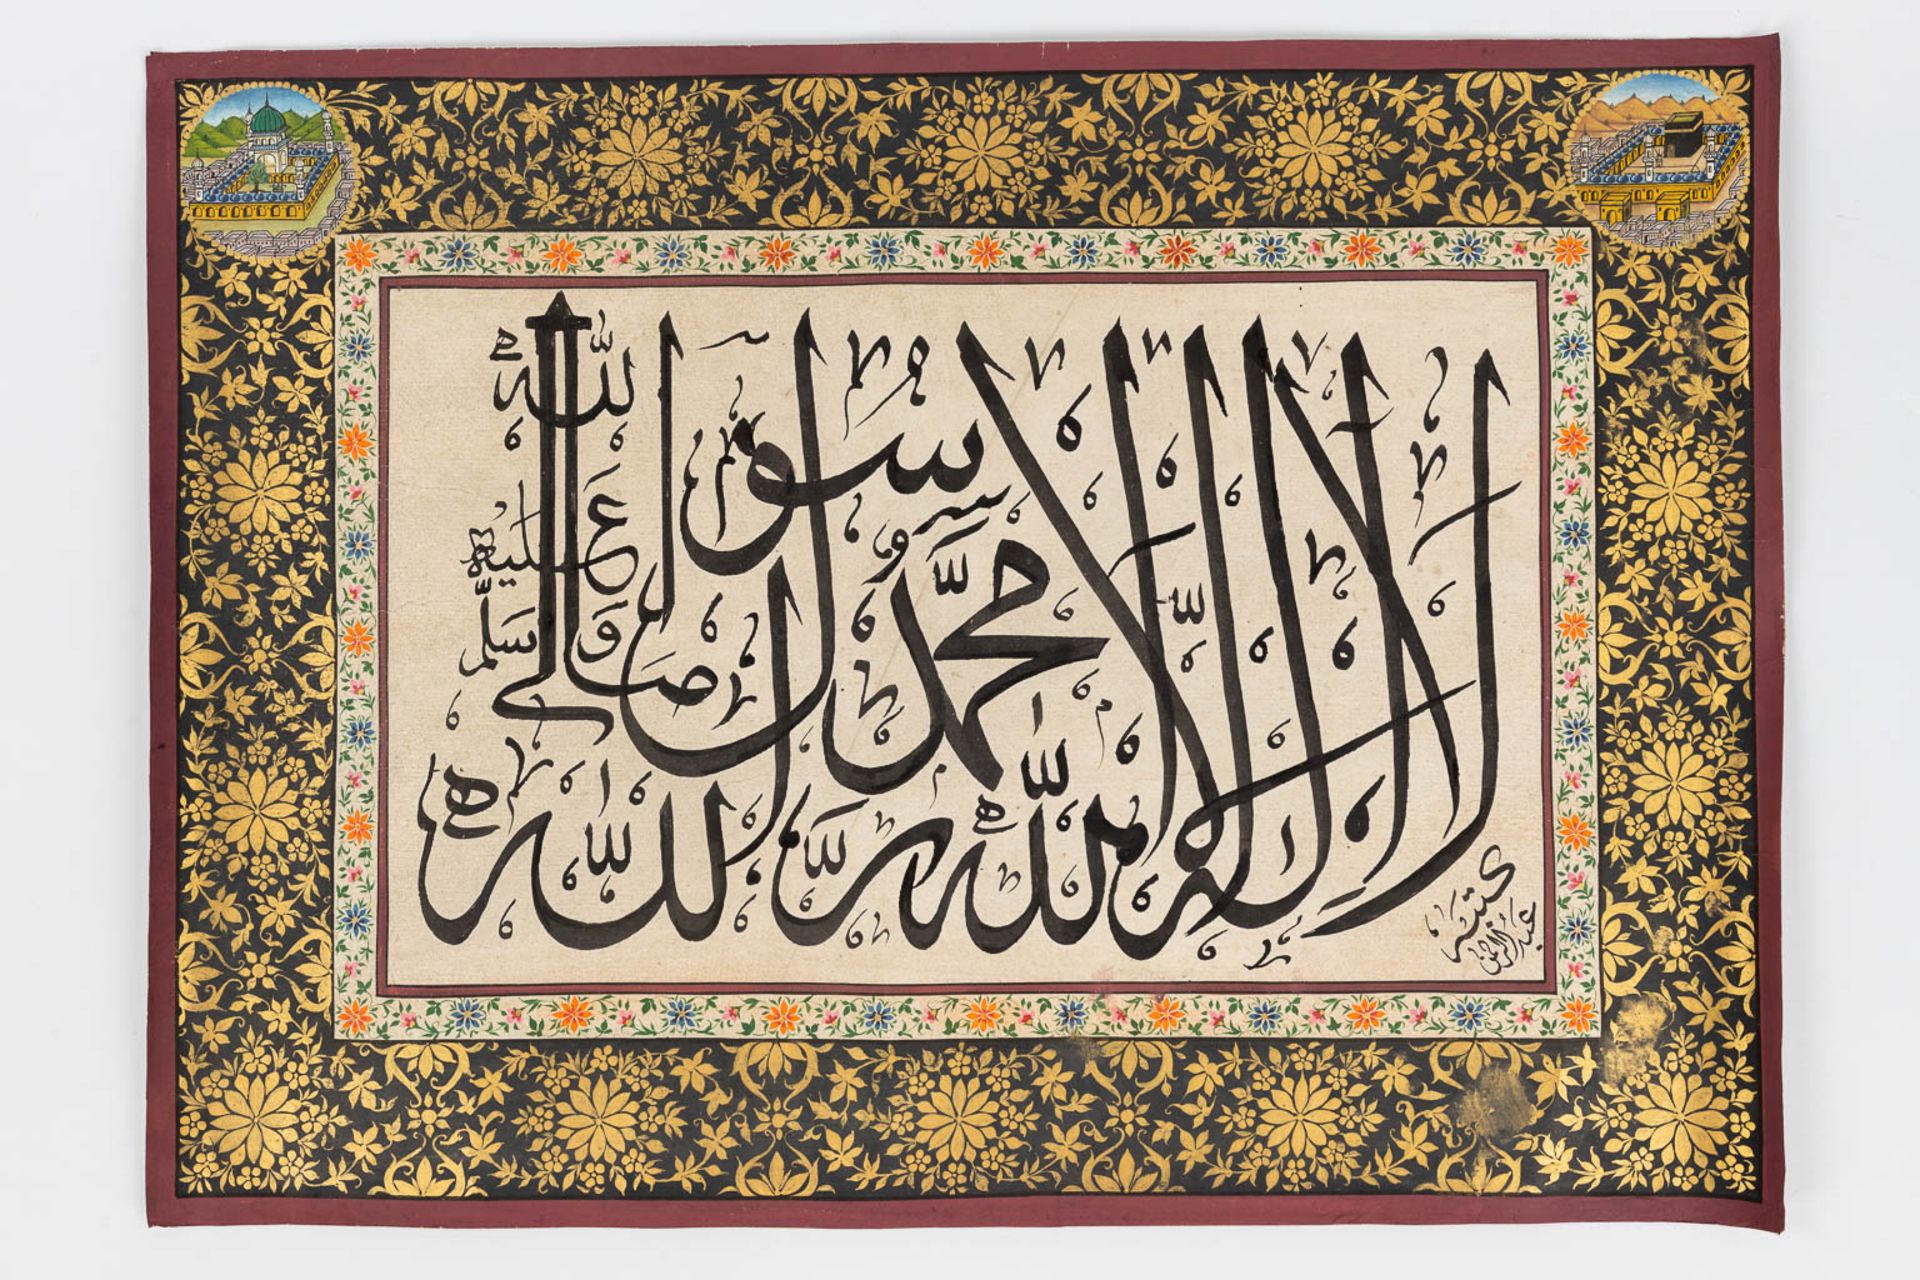 لا اله الا الله محمد رسول الله
صلى الله عليه وسلم
كتبه
عبد الرحمن